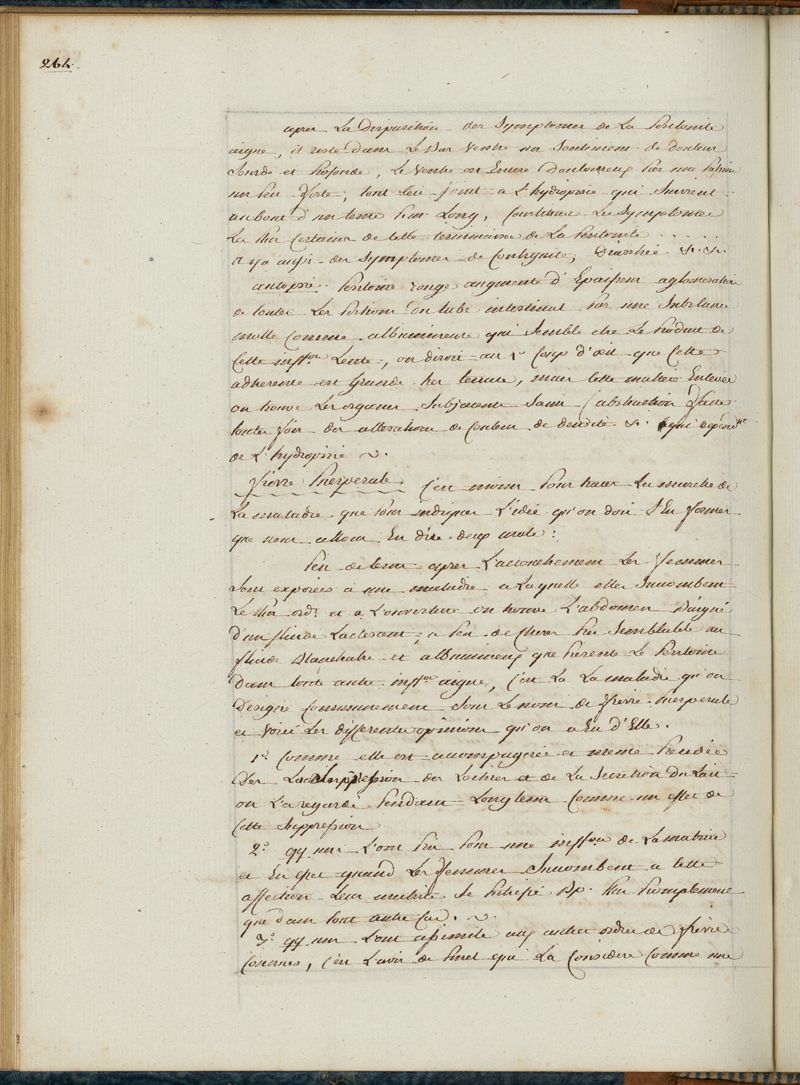 264.
apres La Disparition des Symptomes de La Peritonite
aigue, il reste dans Le bas Ventre un Sentiment de douleur
Sourde et profonde, Le Ventre est Encore Douloureux par une pression
un peu forte, tout ceci joint a L'hydropisie qui Survient
au bout d'un tems plus Long, Constitue Les Symptomes
Les plus Certains de cette terminaison de La Peritonite . . . . .
il y a aussi des Symptomes de Continuité, Diarrhée &. &.
autopsie. Peritoine rouge augmenté d'Epaisseur agglomeration
de toutes Les Portions du tube intestinal par une Substance
molle comme albumineuse qui Semble etre Le Produit de
Cette inff.on Lente, on diroit au 1er Coup d'œil que Cette
adherence est grande, mais cette matiere Enlevée
on trouve Les organes Subjacents Sains (abstraction faite
toute fois des alterations de Couleur de densité &. qui dependent
de L'hydropisie ~.
Fievre Puerperale. C'est moins Pour tracer La marche de
La maladie que Pour indiquer L'idée qu'on doit S'En former
que nous allons En dire deux mots :
Peu de tems apres L'accouchement Les femmes
Sont exposées a une maladie a Laquelle elles Succombent
Le plus ord.t et a L'ouverture on trouve L'abdomen Baigné
d'un fluide Lactescent a peu de chose Pres Semblable au
fluide Blanchatre et albumineux que Presente Le Peritoine
Dans toute autre inff.on aigue, C'est La La maladie qu'on
Designe Communement Sous Le nom de fievre Puerperale
et Voici Les differentes opinions qu'on a Eu d'Elle.
1.o Comme elle est accompagnée et meme Precedée
Des La Suppression des Lochies et de La Secretion Du Lait
on L'a regardé Pendant Longtems Comme un effet de
Cette Suppression
2.o qq uns L'ont Pris Pour une inff.on de La matrice
a En que quand Les femmes Succombent a cette
affection Leur matrice Se Putrefie Bp. Plus Promptement
que dans tout autre Cas. ~.
3.o qq uns L'ont assimilé aux autres ordres de fievre
Connues, C'est L'avis de Pinel qui La Considere Comme une